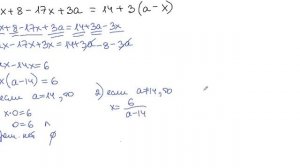 x+8-17x+3a = 14+3(a-x)
x+8-17x+3a = 14+3a-3x
x-17x+3x = 14+3a-8-3a
x-14x=6
x(a-14)=6
если a=14, то
x·0=6
0=6 л
реш. нет ∅
2) если a≠14, то
x= 6/(a-14)